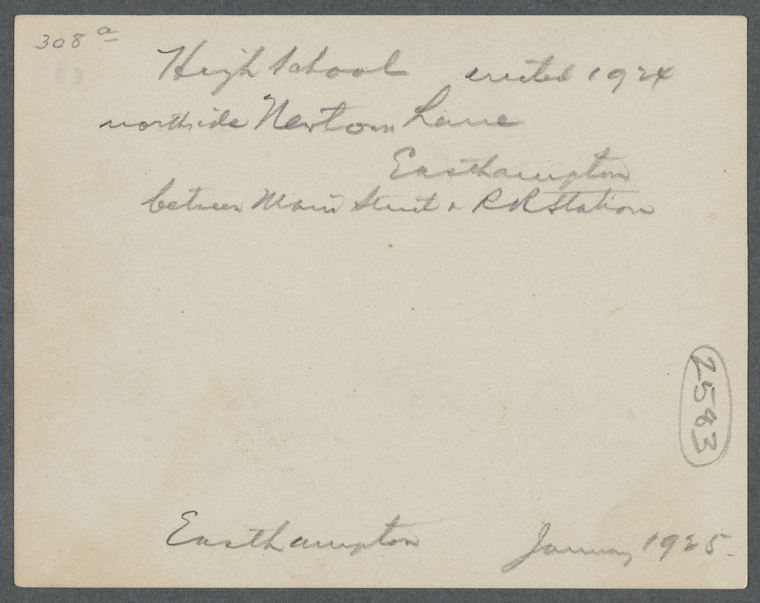 308 a
High School erected 1924
northside Newtown Lane
Easthampton
between Main Street & RR Station
2583
Easthampton January 1925.